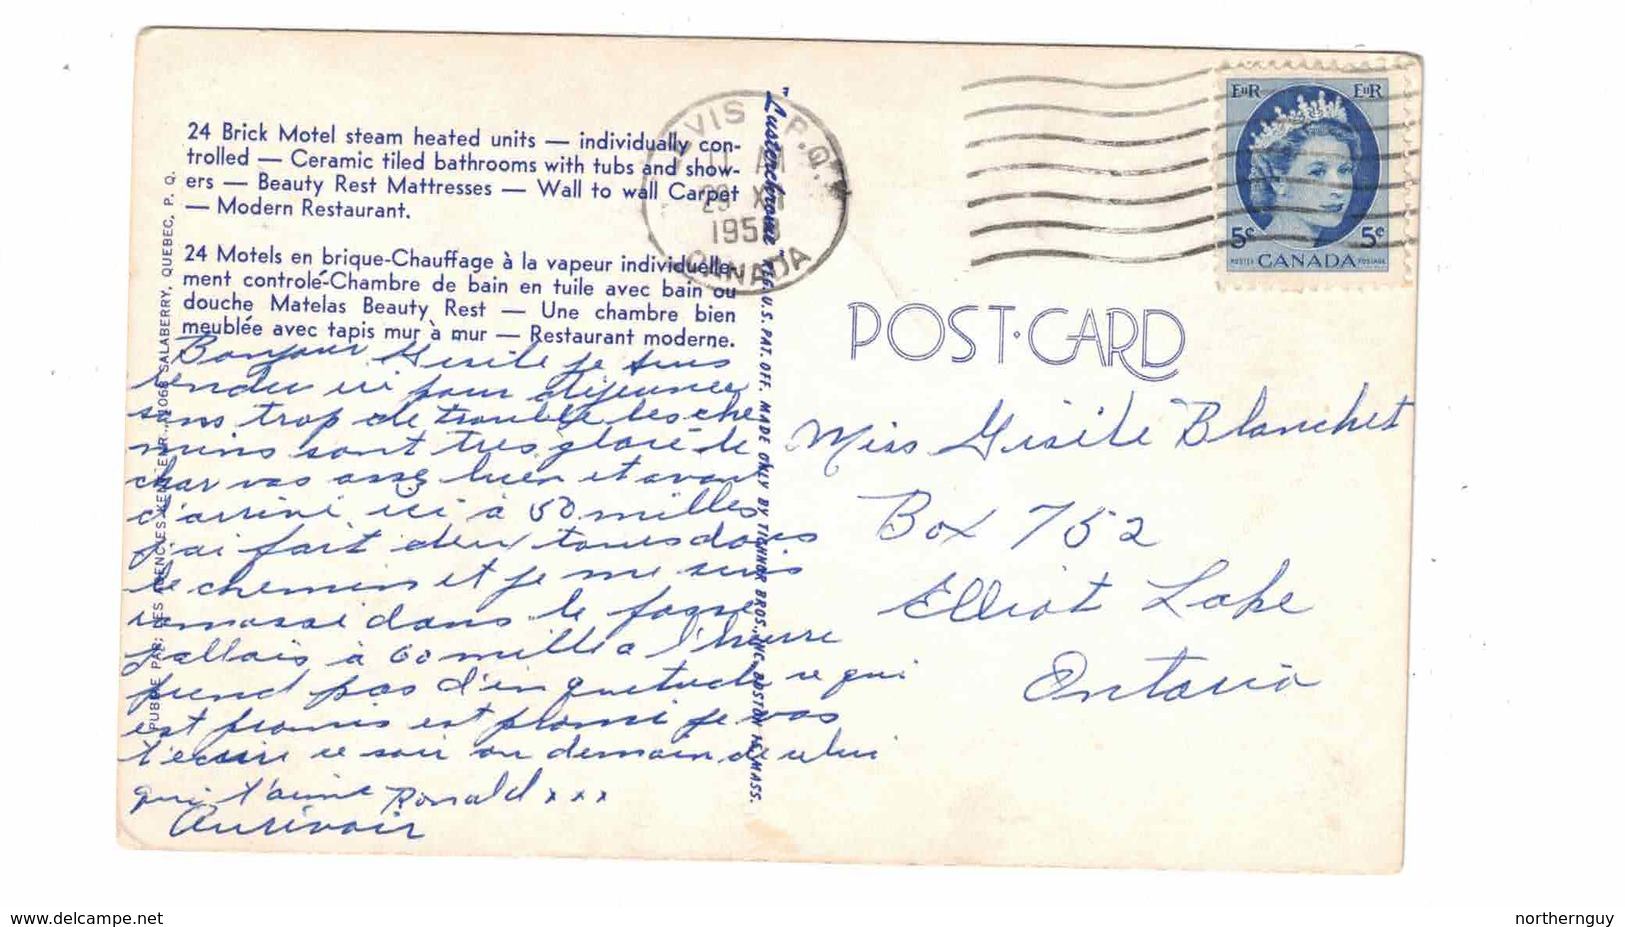 24 Brick Motel steam heated units — individually con-
trolled — Ceramic tiled bathrooms with tubs and show-
ers — Beauty Rest Mattresses — Wall to wall Carpet
— Modern Restaurant.
24 Motels en brique-Chauffage à la vapeur individuelle-
ment controlé-Chambre de bain en tuile avec bain ou
douche Matelas Beauty Rest — Une chambre bien
meublée avec tapis mur à mur — Restaurant moderne.
Bonjour Gisile je suis
rendu ici pour déjeuner
sans trop de trouble les che
mins sont tres glacé le
char vas asse bien et avant
d'arrivé ici à 50 milles
j'ai fait deux tours dans
le chemin et je me suis
ramassé dans le fossé
j'allais à 60 mille a l'heure
prend pas d'inquetude ce qui
est promis est promi je vas
t'ecrire ce soir ou demain de celui
qui t'aime Ronald x x x
Aurevoir
PUBLIÉ PAR: LES AGENCES KENT ENR., 1068 SALABERRY, QUEBEC, P. Q.
"Lusterchrome" REG. U.S. PAT. OFF. MADE ONLY BY TICHNOR BROS., INC., BOSTON MASS.
LEVIS P.Q.
11 M
29 XII
195
CANADA
EIIR EIIR
5c 5c
POSTES CANADA POSTAGE
POST·CARD
Miss Gisile Blanchet
Box 752
Elliot Lake
Ontario
www.delcampe.net
northernguy